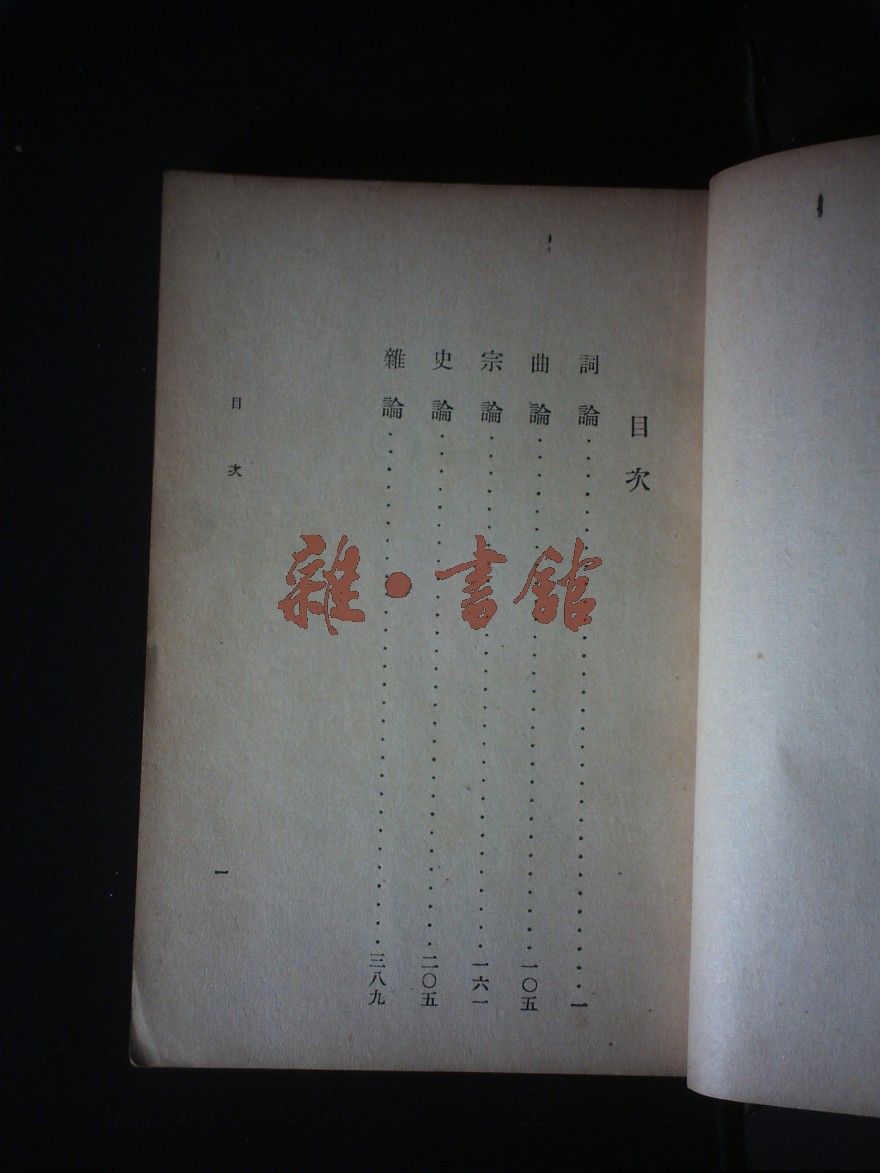 目次
詞論・・・・・・・・・・・・・・・・・・・・・・一
曲論・・・・・・・・・・・・・・・・・・・・一〇五
宗論・・・・・・・・・・・・・・・・・・・・一六一
史論・・・・・・・・・・・・・・・・・・・・二〇五
雜論・・・・・・・・・・・・・・・・・・・・三八九
目次
一
雜・書館